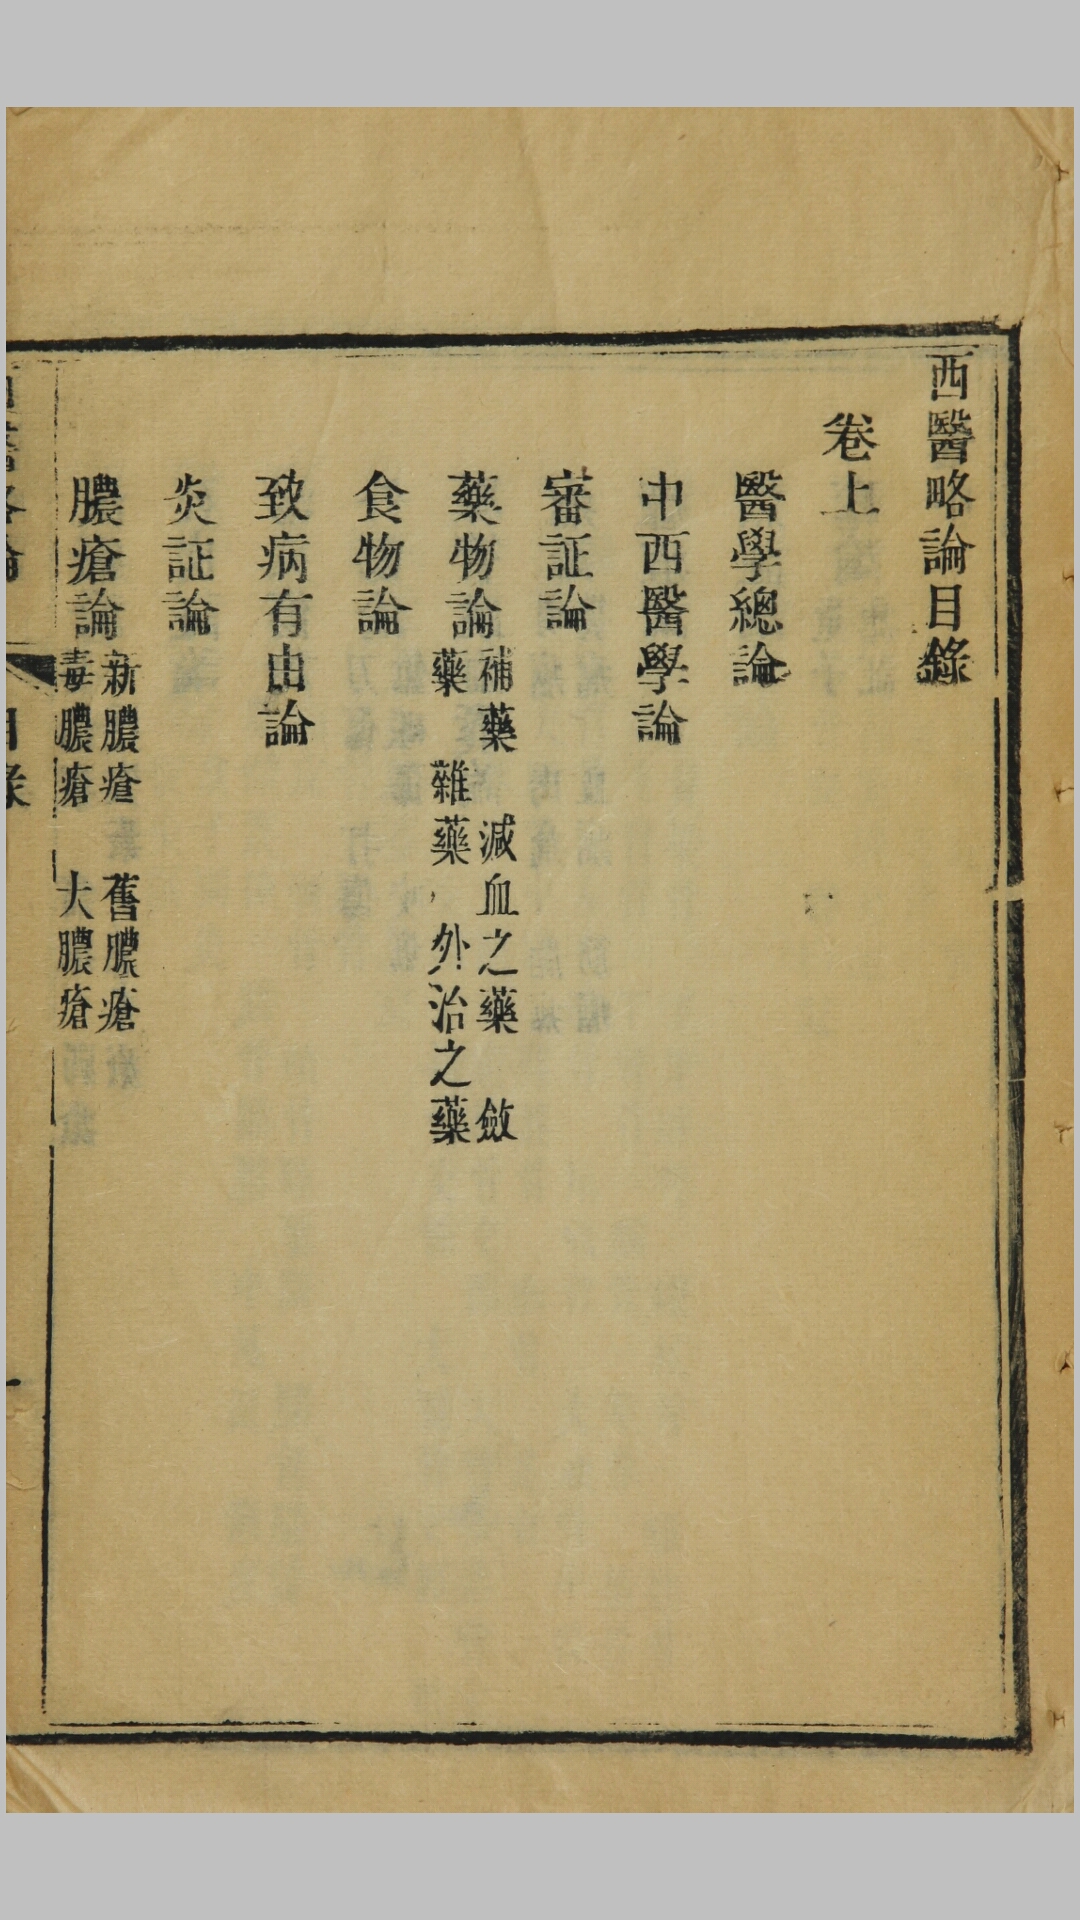 西醫略論目錄
卷上
醫學總論
中西醫學論
審証論
藥物論 補藥 減血之藥 斂
藥 雜藥 外治之藥
食物論
致病有由論
炎証論
膿瘡論 新膿瘡 舊膿瘡
毒膿瘡 大膿瘡
目錄 一